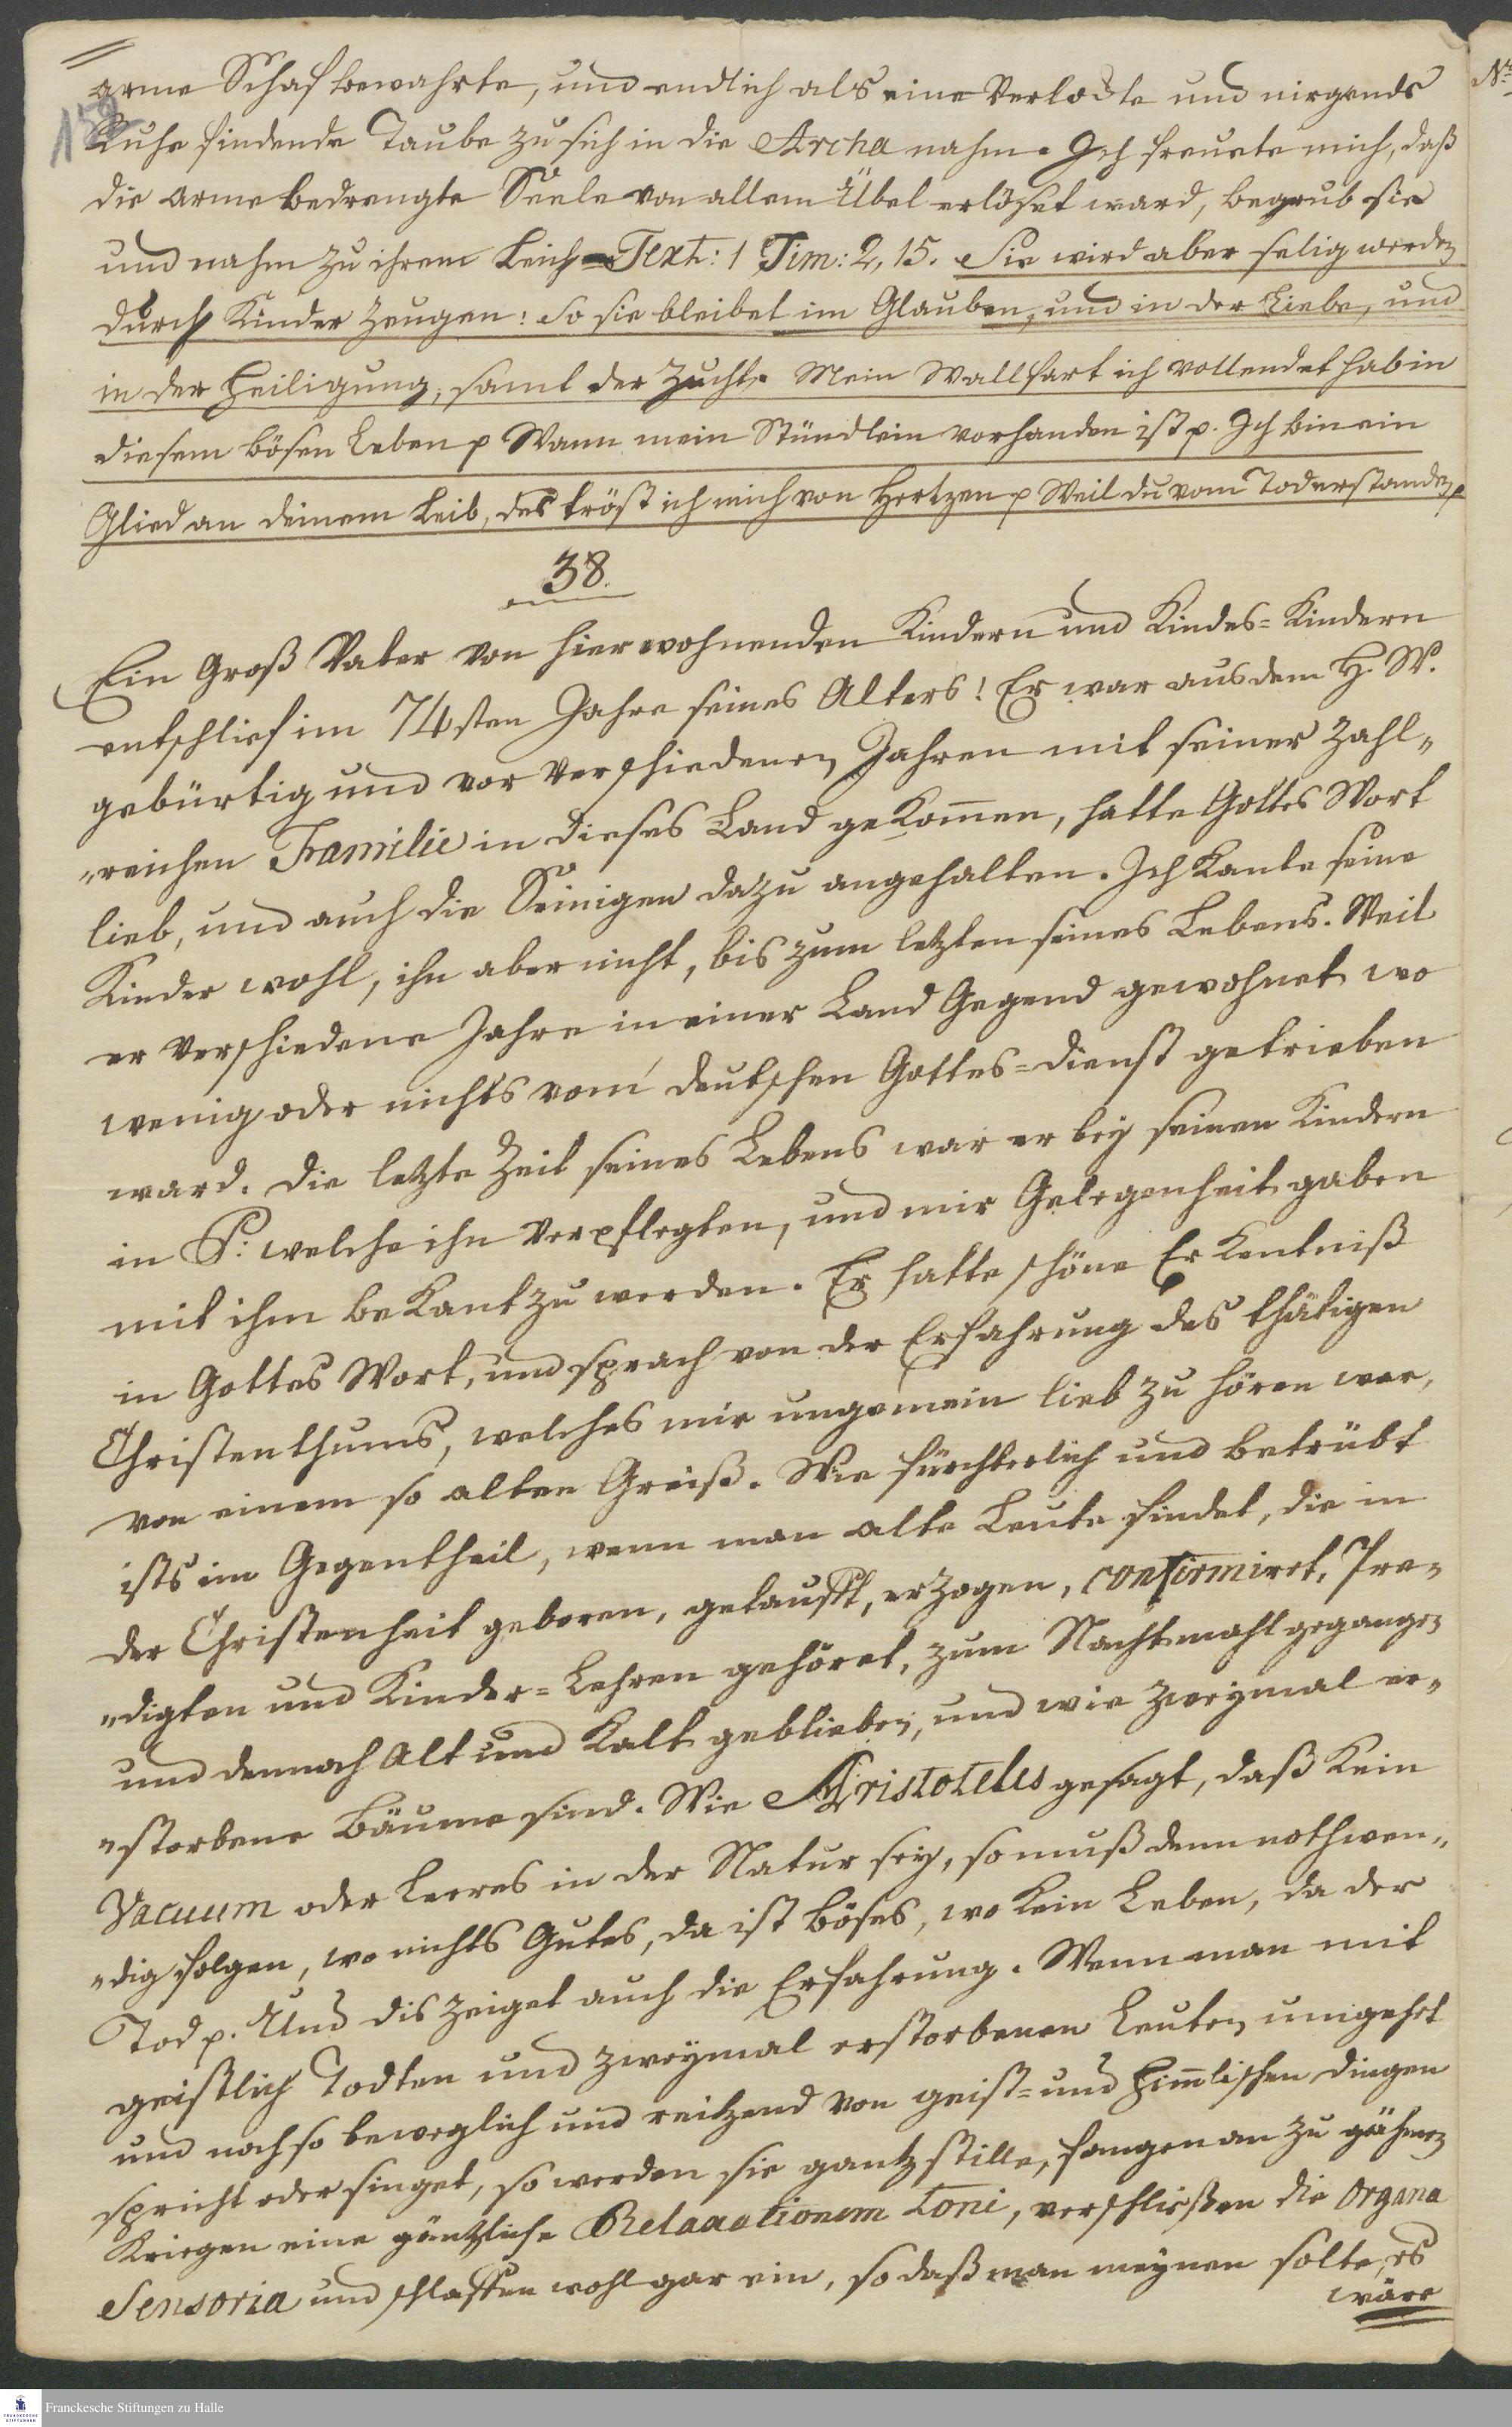 arme Schaf bewahrte, und endlich als eine Verlockte und nirgends
Ruhe findende Taube zu sich in die Archa nahm. Ich freuete mich, daß
die arme bedrengte Seele von allem Übel erlöset ward, begrub sie
und nahm zu ihrem Leich-Text: 1 Tim: 2, 15. Sie wird aber selig werden
durch Kinder zeugen: So sie bleibet im Glauben, und in der Liebe, und
in der Heiligung, samt der Zucht. Mein Wallfart ich vollendet hab in
diesem bösen Leben p Wann mein Stündlein vorhanden ist p. Ich bin ein
Glied an deinem Leib, des tröst ich mich von Hertzen p Weil du vom Tod erstanden p
38.
Ein Groß Vater von hier wohnenden Kindern und Kindes-Kindern
entschlief im 74sten Jahre seines Alters! Er war aus dem H. W.
gebürtig und vor verschiedenen Jahren mit seiner Zahl„
„reichen Familie in dieses Land gekom̄en, hatte Gottes Wort
lieb, und auch die Seinigen dazu angehalten. Ich kante seine
Kinder wohl, ihn aber nicht, bis zum letzten seines Lebens. Weil
er verschiedene Jahre in einer Land Gegend gewohnet wo
wenig oder nichts vom deutschen Gottes-dienst getrieben
ward. Die letzte Zeit seines Lebens war er bey seinen Kindern
in P: welche ihn verpflegten, und mir Gelegenheit gaben
mit ihm bekant zu werden. Er hatte schöne Erkentniß
in Gottes Wort, und sprach von der Erfahrung des thätigen
Christenthums, welches mir ungemein lieb zu hören war,
von einem so alten Greiß. Wie fürchterlich und betrübt
ists im Gegentheil, wenn man alte Leute findet, die in
der Christenheit geboren, getaufft, erzogen, confirmiret, Pre„
„digten und Kinder-Lehren gehöret, zum Nachtmahl gegangen
und dennoch Alt und Kalt geblieben, und wie zweymal er„
„storbene Bäume sind. Wie Aristoteles gesagt, daß kein
Vacuum oder leeres in der Natur sey, so muß denn nothwen„
„dig folgen, wo nichts Gutes, da ist böses, wo kein Leben, da der
Tod p. Und dis zeiget auch die Erfahrung. Wenn man mit
geistlich Todten und zweymal erstorbenen Leuten umgehet
und noch so beweglich und reitzend von geist- und Him̄lischen Dingen
spricht oder singet, so werden sie gantz stille, fangen an zu gähnen
kriegen eine gäntzliche Relaxationem toni, verschließen die Organa
Sensoria und schlaffen wohl gar ein, so daß man meynen solte, es
wäre
Franckesche Stiftungen zu Halle